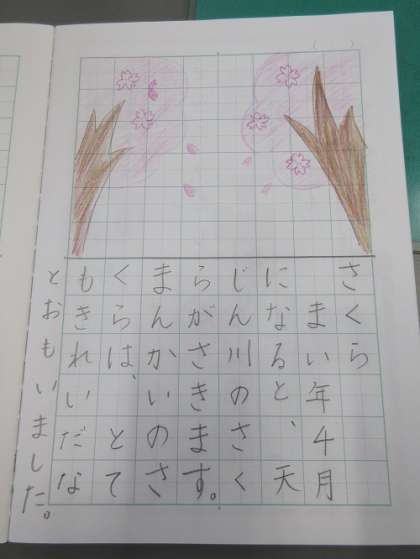 さくら
まい年4月
になると、天
じん川のさく
らがさきます。
まんかいのさ
くらは、とて
もきれいだな
とおもいました。